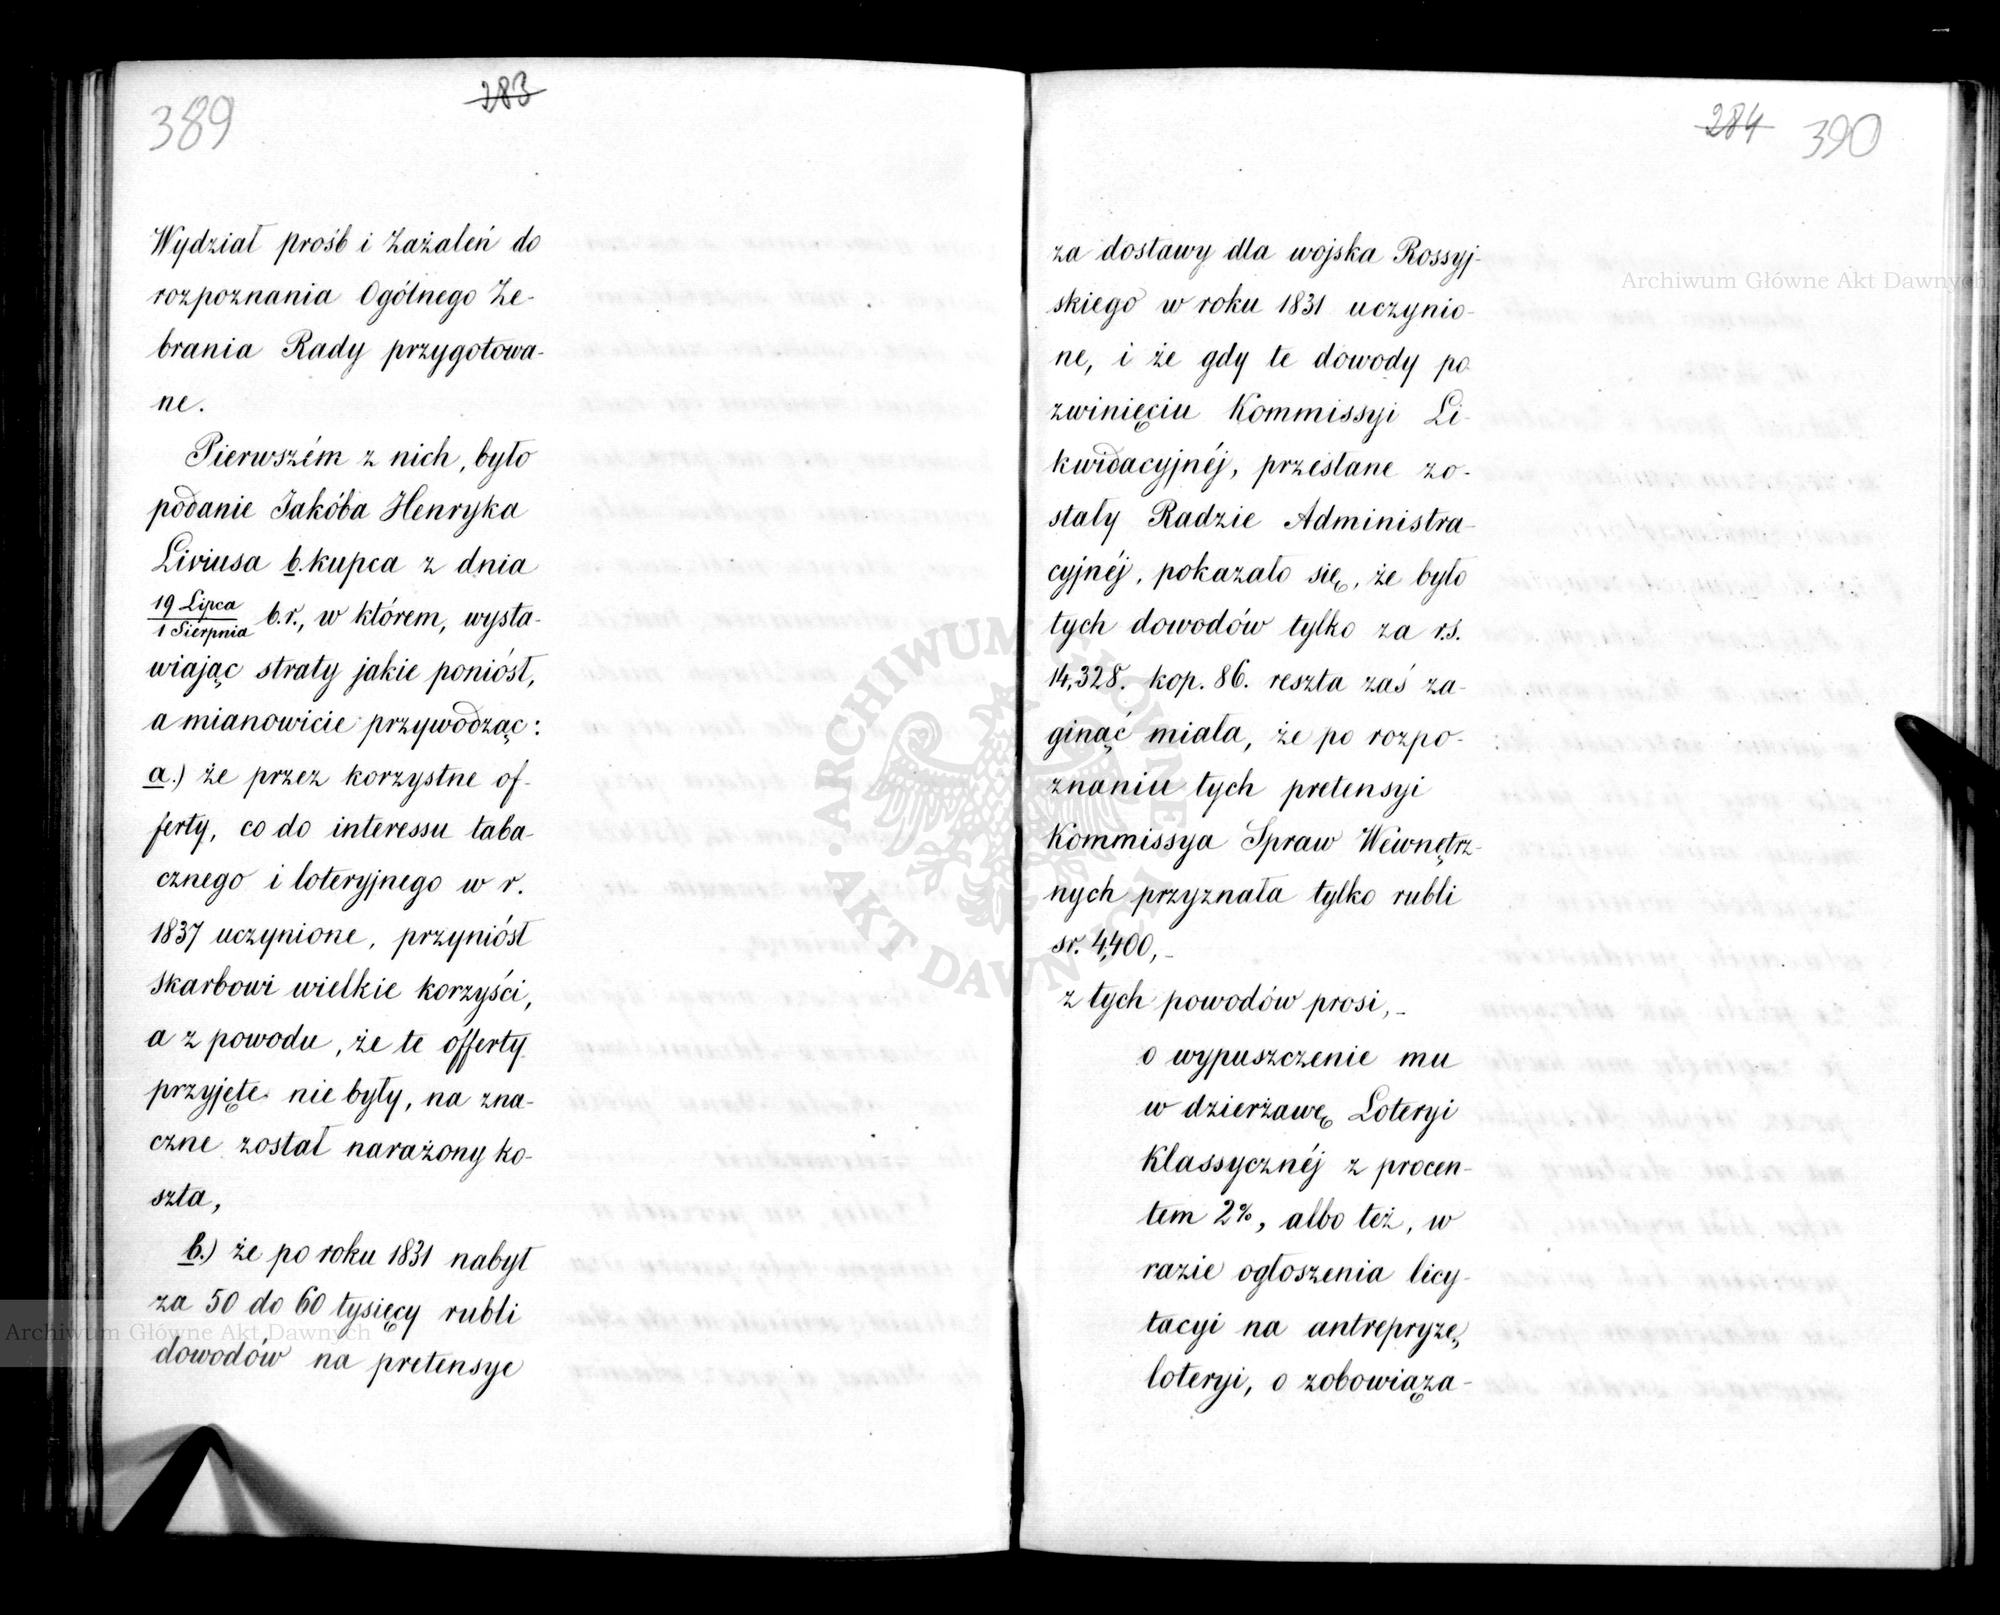 389
283
Wydział prośb i Zażaleń do
rozpoznania Ogólnego Ze-
brania Rady przygotowa-
ne.
Pierwszém z nich, było
podanie Jakóba Henryka
Liviusa b. kupca z dnia
19 Lipca
1 Sierpnia b.r., w którem, wysta-
wiając straty jakie poniósł,
a mianowicie przywodząc:
a.) że przez korzystne of-
ferty, co do interessu taba-
cznego i loteryjnego w r.
1837 uczynione, przyniósł
skarbowi wielkie korzyści,
a z powodu, że te offerty
przyjęte nie były, na zna-
czne został narażony ko-
szta,
b.) że po roku 1831 nabył
za 50 do 60 tysięcy rubli
dowodów na pretensye
284 390
za dostawy dla wojska Rossyj-
skiego w roku 1831 uczynio-
ne, i że gdy te dowody po
zwinięciu Kommissyi Li-
kwidacyjnéj, przesłane zo-
stały Radzie Administra-
cyjnéj, pokazało się, że było
tych dowodów tylko za r.s.
14,328. kop. 86. reszta zaś za-
ginąć miała, że po rozpo-
znaniu tych pretensyi
Kommissya Spraw Wewnętrz-
nych przyznała tylko rubli
sr. 4,400,-
z tych powodów prosi,-
o wypuszczenie mu
w dzierżawę Loteryi
Klassycznéj z procen-
tem 2%, albo też, w
razie ogłoszenia licy-
tacyi na antrepryzę
loteryi, o zobowiąza-
Archiwum Główne Akt Dawnych
Archiwum Główne Akt Dawnych
ARCHIWUM GŁÓWNE AKT DAWNYCH